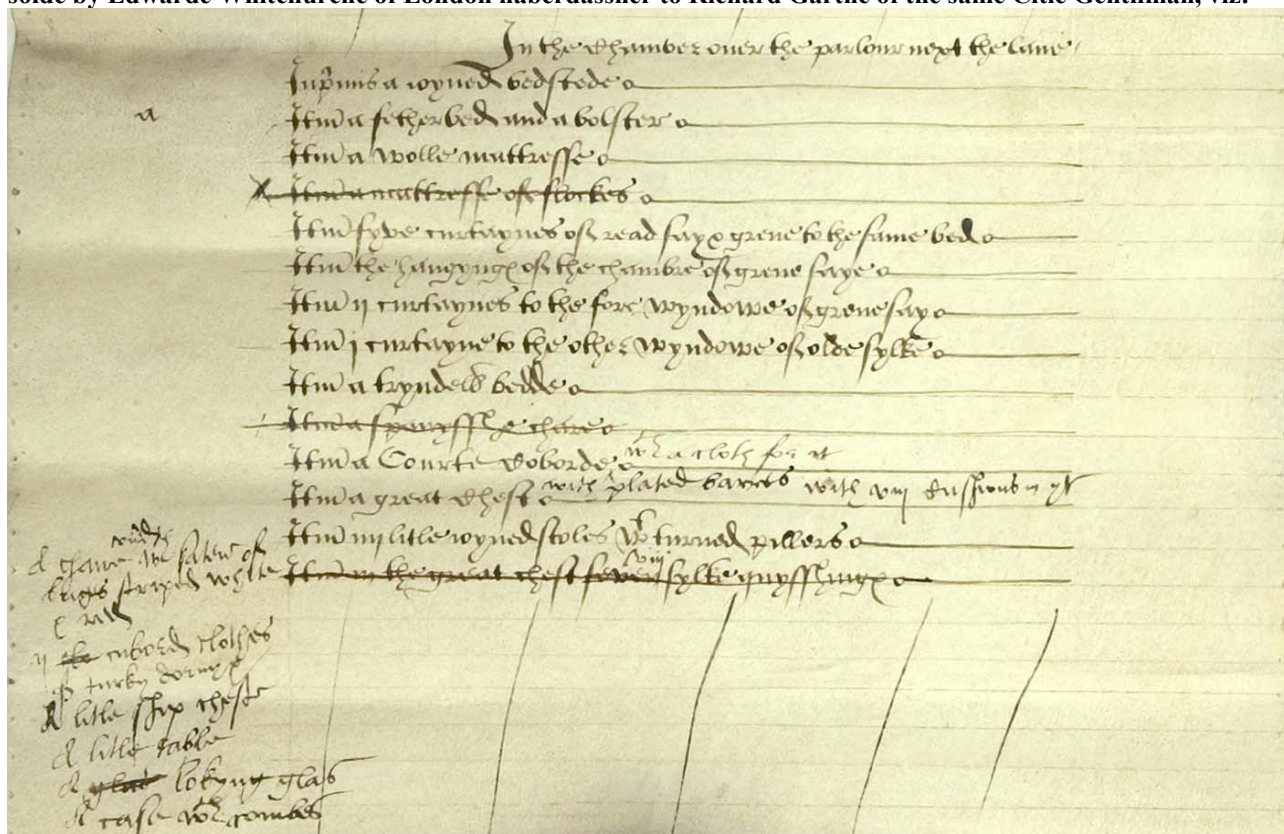 solde by Edwarde Whitchurche of London haberdassher to Richard Garthe of the same Citie Gentilman, viz.
In the Chamber over the parlour next the lane
Inprimis a ioyned bedstede
a
Itm a fetherbed and a bolster
Itm a wolle mattresse
Itm a mattresse of flockes
Itm fyve curtaynes of read say & grene to the same bed
Itm the hangyng of the chambre of grene saye
Itm ij curtaynes to the fore wyndowe of grene say
Itm j curtayne to the other wyndowe of olde sylke
Itm a tryndell bedde
Itm a spanysshe chare
Itm a Courte Coborde wt a cloth for it
Itm a great Chest with plated barres with viij Cushions in yt
Itm iiij litle ioyned stoles wt turned pillers
Itm in the great chest seven viij sylke quysshyng
A chaire coverd wt saten of
brigs striped white
& rede
ij cubord clothes
of turky dornyx
A litle ship cheste
A litle table
A glas lokyng glas
A case wt combes